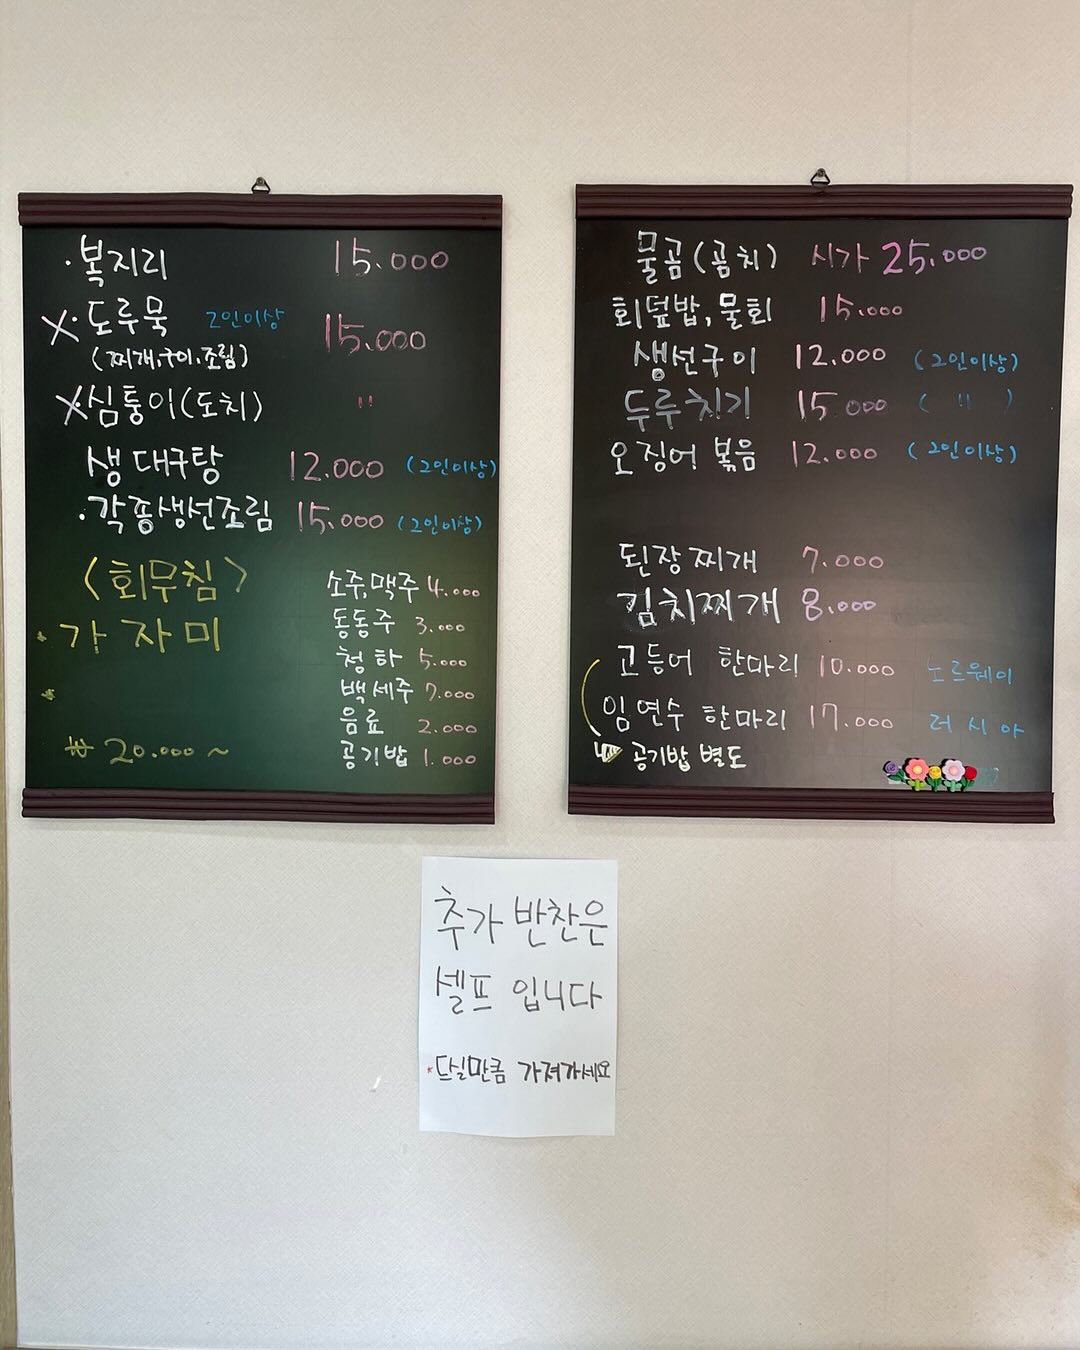 · 복지리 15.000
X · 도루묵 2인이상 15.000
(찌개,구이.조림)
X 심퉁이(도치) "
생대구탕 12.000 (2인이상)
· 각종생선조림 15.000 (2인이상)
<회무침>
* 가자미
*
₩ 20.000 ~
소주,맥주 4.000
동동주 3.000
청하 5.000
백세주 7.000
음료 2.000
공기밥 1.000
물곰(곰치) 시가 25.000
회덮밥, 물회 15.000
생선구이 12.000 (2인이상)
두루치기 15.000 ( " )
오징어 볶음 12.000 (2인이상)
된장찌개 7.000
김치찌개 8.000
고등어 한마리 10.000 노르웨이
임연수 한마리 17.000 러시아
공기밥 별도
추가 반찬은
셀프 입니다
* 드실만큼 가져가세요